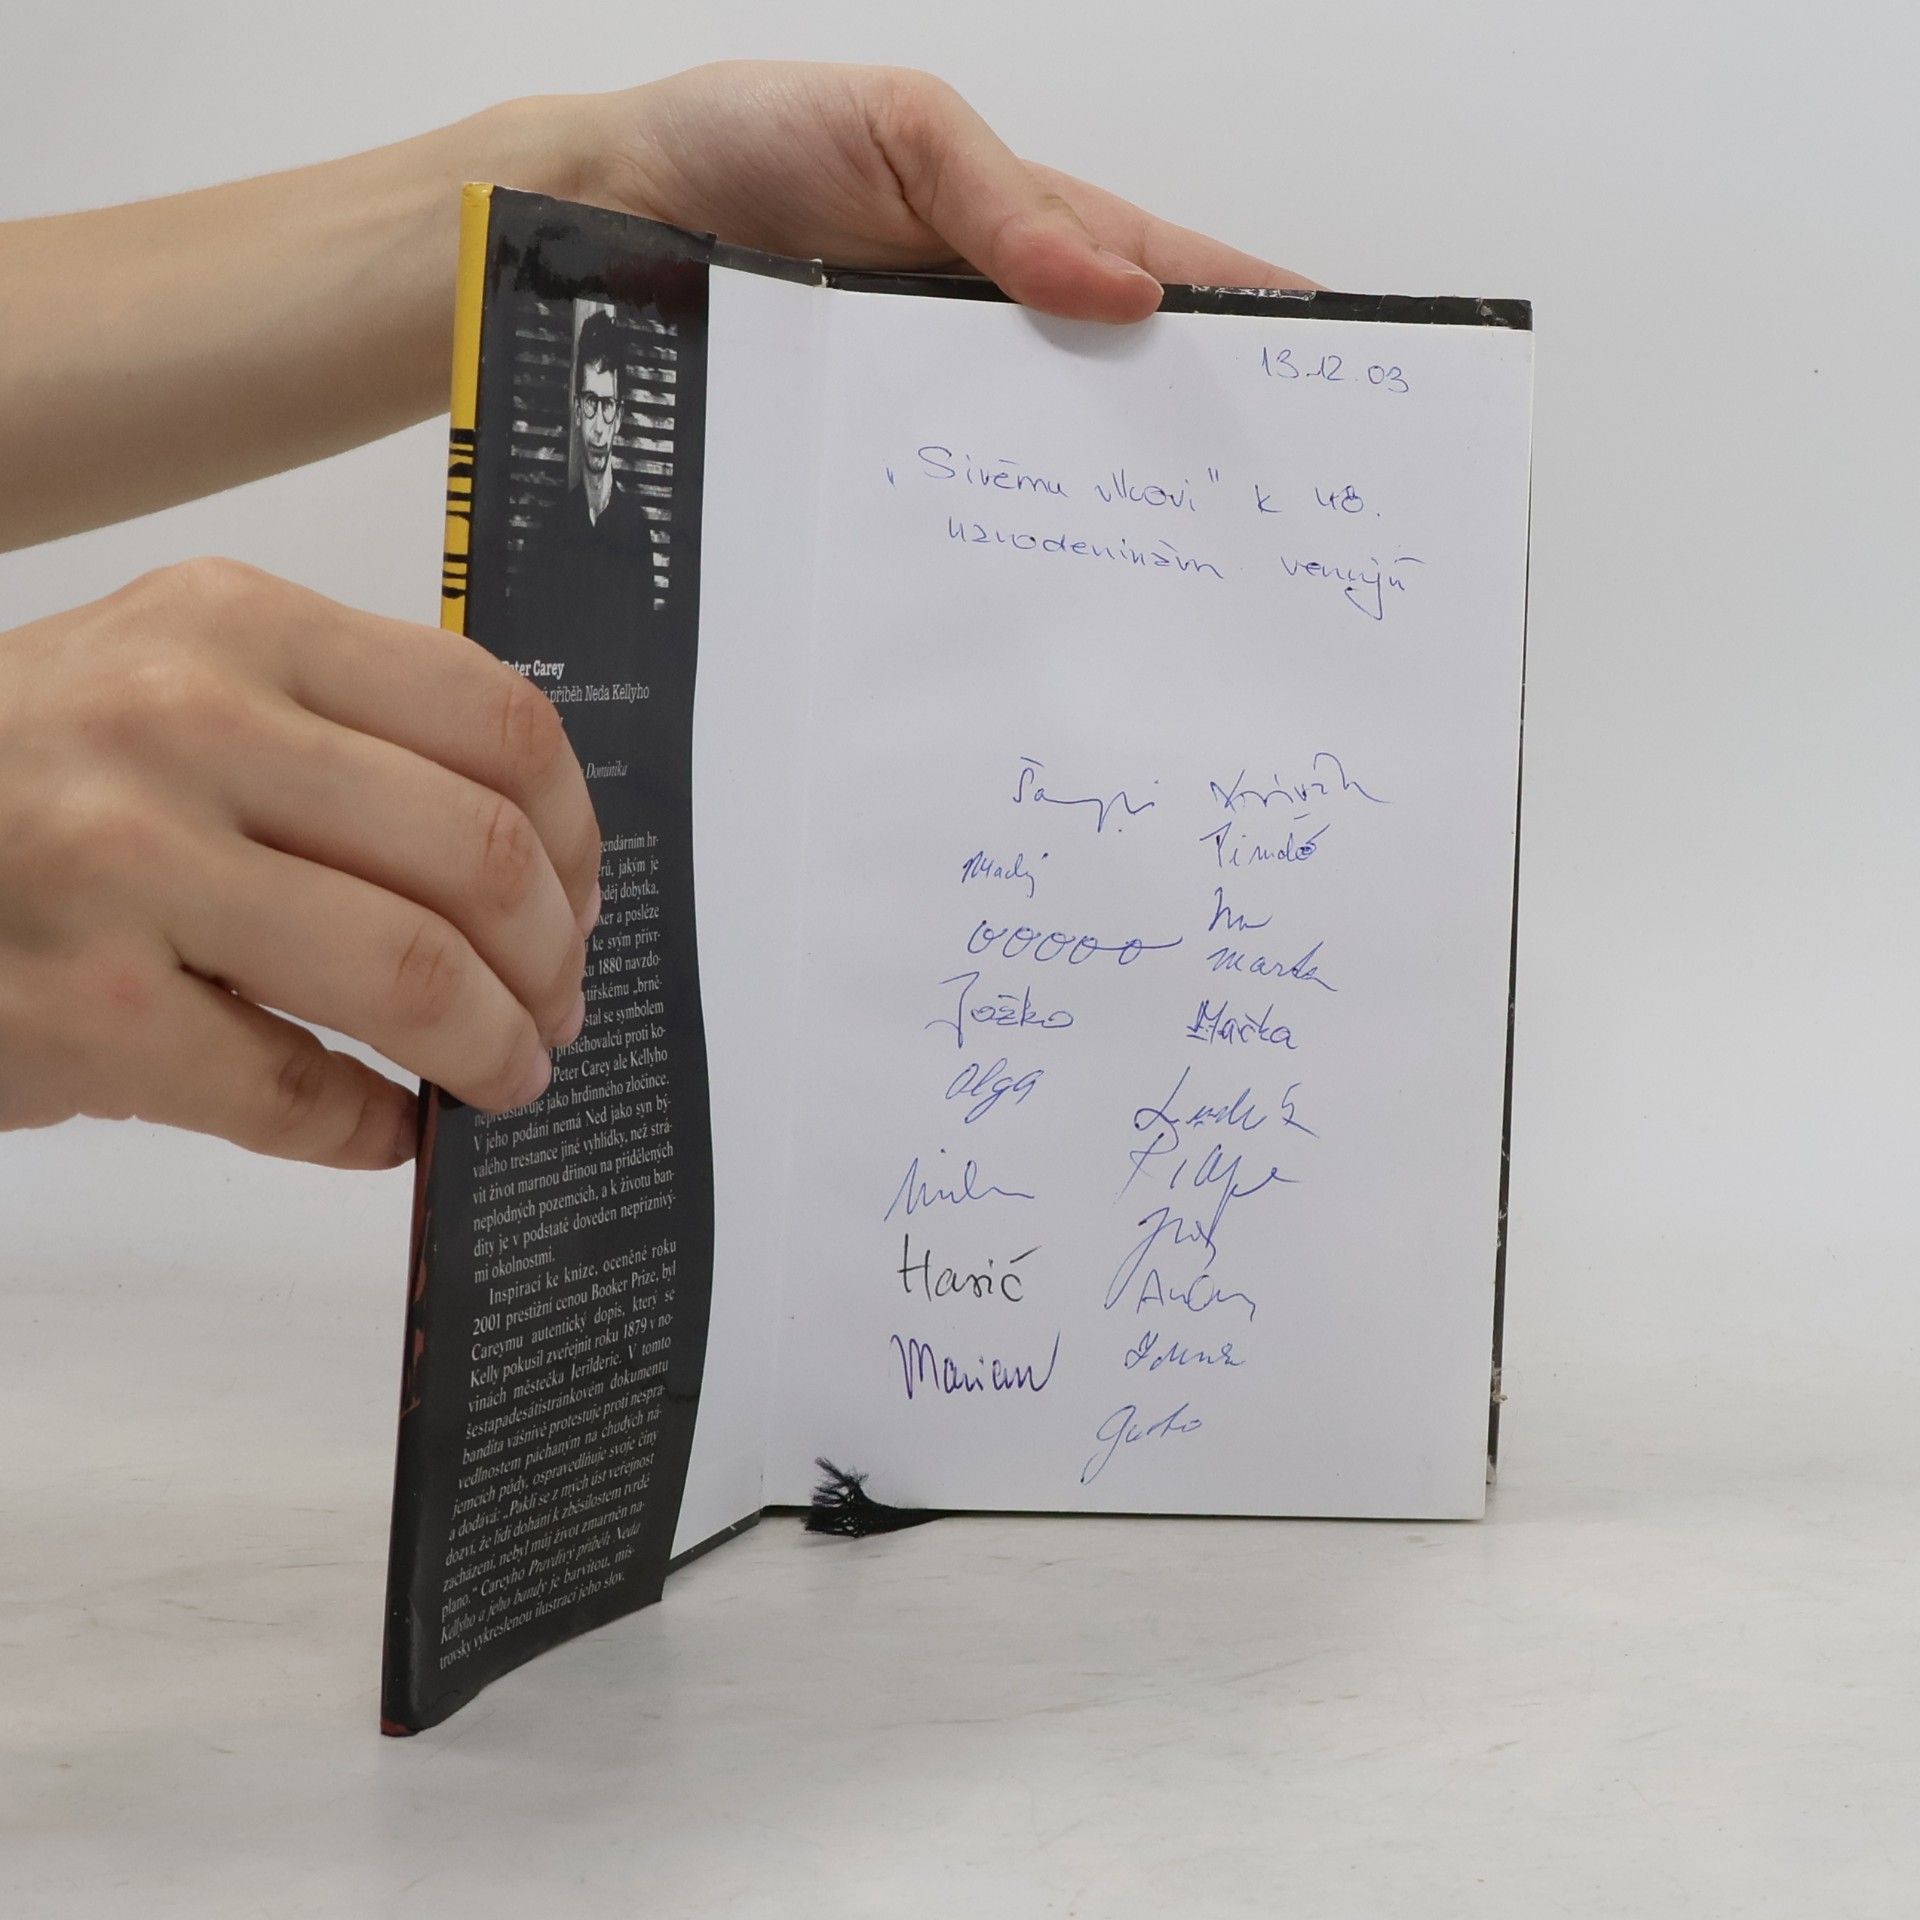 Peter Carey
příběh Neda Kellyho
Dominika
jakým je
dobytka,
a posléze
ke svým přívr-
1880 navzdo-
„brně-
stal se symbolem
přistěhovalců proti ko-
Peter Carey ale Kellyho
nepředstavuje jako hrdinného zločince.
V jeho podání nemá Ned jako syn bý-
valého trestance jiné vyhlídky, než strá-
vit život marnou dřinou na přidělených
neplodných pozemcích, a k životu ban-
dity je v podstatě doveden nepříznivý-
mi okolnostmi.
Inspirací ke knize, oceněné roku
2001 prestižní cenou Booker Prize, byl
Careymu autentický dopis, který se
Kelly pokusil zveřejnit roku 1879 v no-
vinách městečka Jerilderie. V tomto
šestapadesátistránkovém dokumentu
bandita vášnivě protestuje proti nespra-
vedlnostem páchaným na chudých ná-
jemcích půdy, ospravedlňuje svoje činy
a dodává: „Pakli se z mých úst veřejnost
dozví, že lidi dohání k zběsilostem tvrdé
zacházení, nebyl můj život zmarněn na-
plano.“ Careyho Pravdivý příběh Neda
Kellyho a jeho bandy je barvitou, mis-
trovsky vykreslenou ilustrací jeho slov.
13.12.03
„Sivému vlkovi" k 48.
narodeninám venujú
Mladý
Jožko
Olga
Milan
Harič
Marian
Krivák
Pindó
Marta
Mačka
Ludek
Gusto